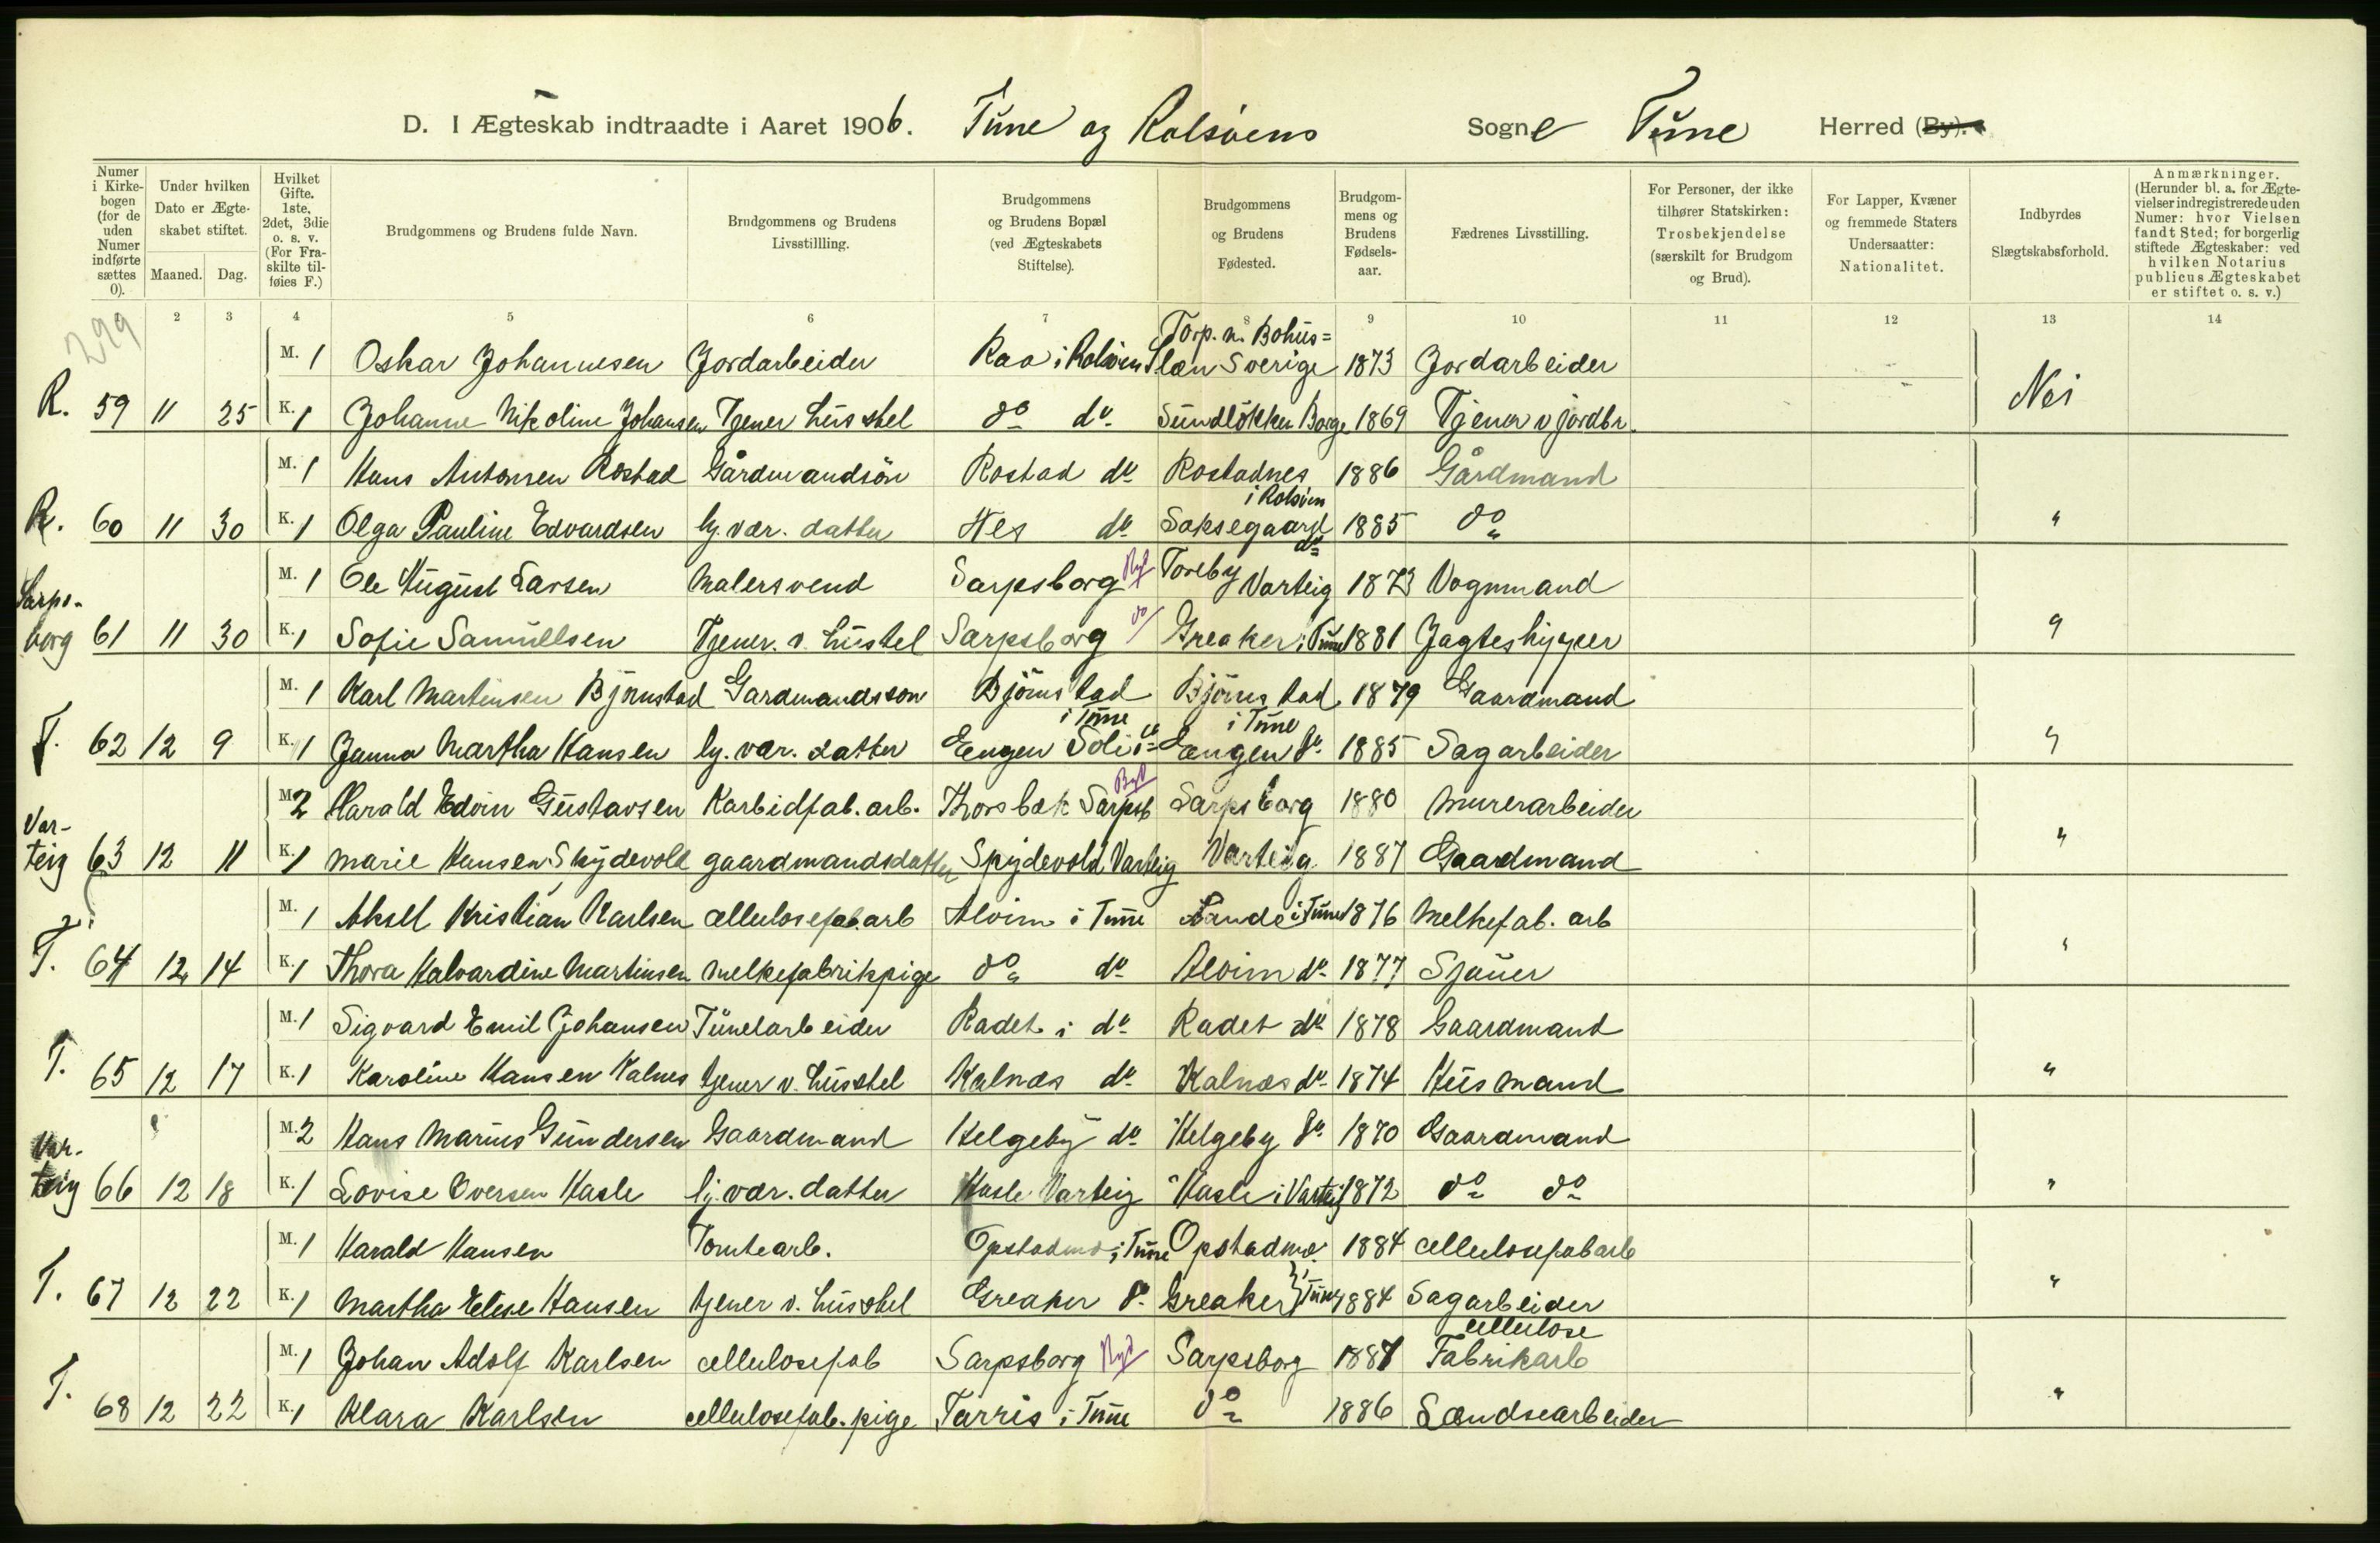 D. I Ægteskab indtraadte i Aaret 1906. Tune og Rolsøens Sogne Tune Herred (By).
Numer i Kirkebogen (for de uden Numer indførte sættes 0).
Under hvilken Dato er Ægteskabet stiftet.
Maaned. Dag.
Hvilket Gifte. 1ste, 2det, 3die o. s. v. (For Fraskilte tilføies F.)
Brudgommens og Brudens fulde Navn.
Brudgommens og Brudens Livsstillling.
Brudgommens og Brudens Bopæl (ved Ægteskabets Stiftelse).
Brudgommens og Brudens Fødested.
Brudgommens og Brudens Fødselsaar.
Fædrenes Livsstilling.
For Personer, der ikke tilhører Statskirken: Trosbekjendelse (særskilt for Brudgom og Brud).
For Lapper, Kvæner og fremmede Staters Undersaatter: Nationalitet.
Indbyrdes Slægtskabsforhold.
Anmærkninger. (Herunder bl. a. for Ægtevielser indregistrerede uden Numer: hvor Vielsen fandt Sted; for borgerlig stiftede Ægteskaber: ved hvilken Notarius publicus Ægteskabet er stiftet o. s. v.)
2 3 4 5 6 7 8 9 10 11 12 13 14
299
M. 1 Oskar Johannesen Jordarbeider Rao i Rolsøen Torp. n. Bohuslæn Sverige 1873 Jordarbeider
R. 59 11 25 K. 1 Johanne Nikoline Johansen Tjener husstel do do Sundløkken Borge 1869 Tjener v jordbr. Nei
M. 1 Hans Antonsen Rostad Gårdmandsøn Rostad do Rostadnes i Rolsøen 1886 Gårdmand
R. 60 11 30 K. 1 Olga Pauline Edvardsen lg. vær. datter Nes do Soksegaard do 1885 do "
M. 1 Ole August Larsen Malersvend Sarpsborg Byd Toreby Varteig 1873 Vognmand
Sarpsborg 61 11 30 K. 1 Sofie Samuelsen Tjener. v. husstel Sarpsborg do Greaker i Tune 1881 Jagteskipper "
M. 1 Karl Martinsen Bjørnstad Gardmandsson Bjørnstad i Tune Bjørnstad i Tune 1879 Gaardmand
T. 62 12 9 K. 1 Janna Martha Hansen lg. vær. datter Engen Soli Engen do 1885 Sagarbeider "
M. 2 Harald Edvin Gustavsen Karbidfab. arb. Thorsbæk Sarpsb Byd Sarpsborg 1880 Murerarbeider
Varteig 63 12 11 K. 1 Marie Hansen Spydevold gaardmandsdatter Spydevold Varteig Varteig 1887 Gaardmand "
M. 1 Aksel Kristian Karlsen cellulosefab. arb Alvim i Tune Sande i Tune 1876 Melkefab. arb
T. 64 12 14 K. 1 Thora Halvardine Martinsen melkefabrikpige do do Alvim do 1877 Sjauer "
M. 1 Sigvard Emil Johansen Tünelarbeider Radet i do Radet do 1878 Gaardmand
T. 65 12 17 K. 1 Karoline Hansen Kalnes tjener v. husstel Kalnæs do Kalnæs do 1874 Husmand "
M. 2 Hans Marius Gundersen Gaardmand Helgeby do Helgeby do 1870 Gaardmand
Varteig 66 12 18 K. 1 Lovise Iversen Hasle lj. vær. datter Hasle Varteig Hasle i Varteig 1872 do do "
M. 1 Harald Hansen Tomtearb. Opstadmo i Tune Opstadmo i Tune 1884 cellulosefabarb
T. 67 12 22 K. 1 Martha Elise Hansen tjener v. husstel Greaker do Greaker 1884 Sagarbeider "
M. 1 Johan Adolf Karlsen cellulosefab Sarpsborg Byd Sarpsborg 1887 cellulose Fabrikarb
T. 68 12 22 K. 1 Klara Karlsen cellulosefab. pige Tarris i Tune do 1886 Lændsearbeider "